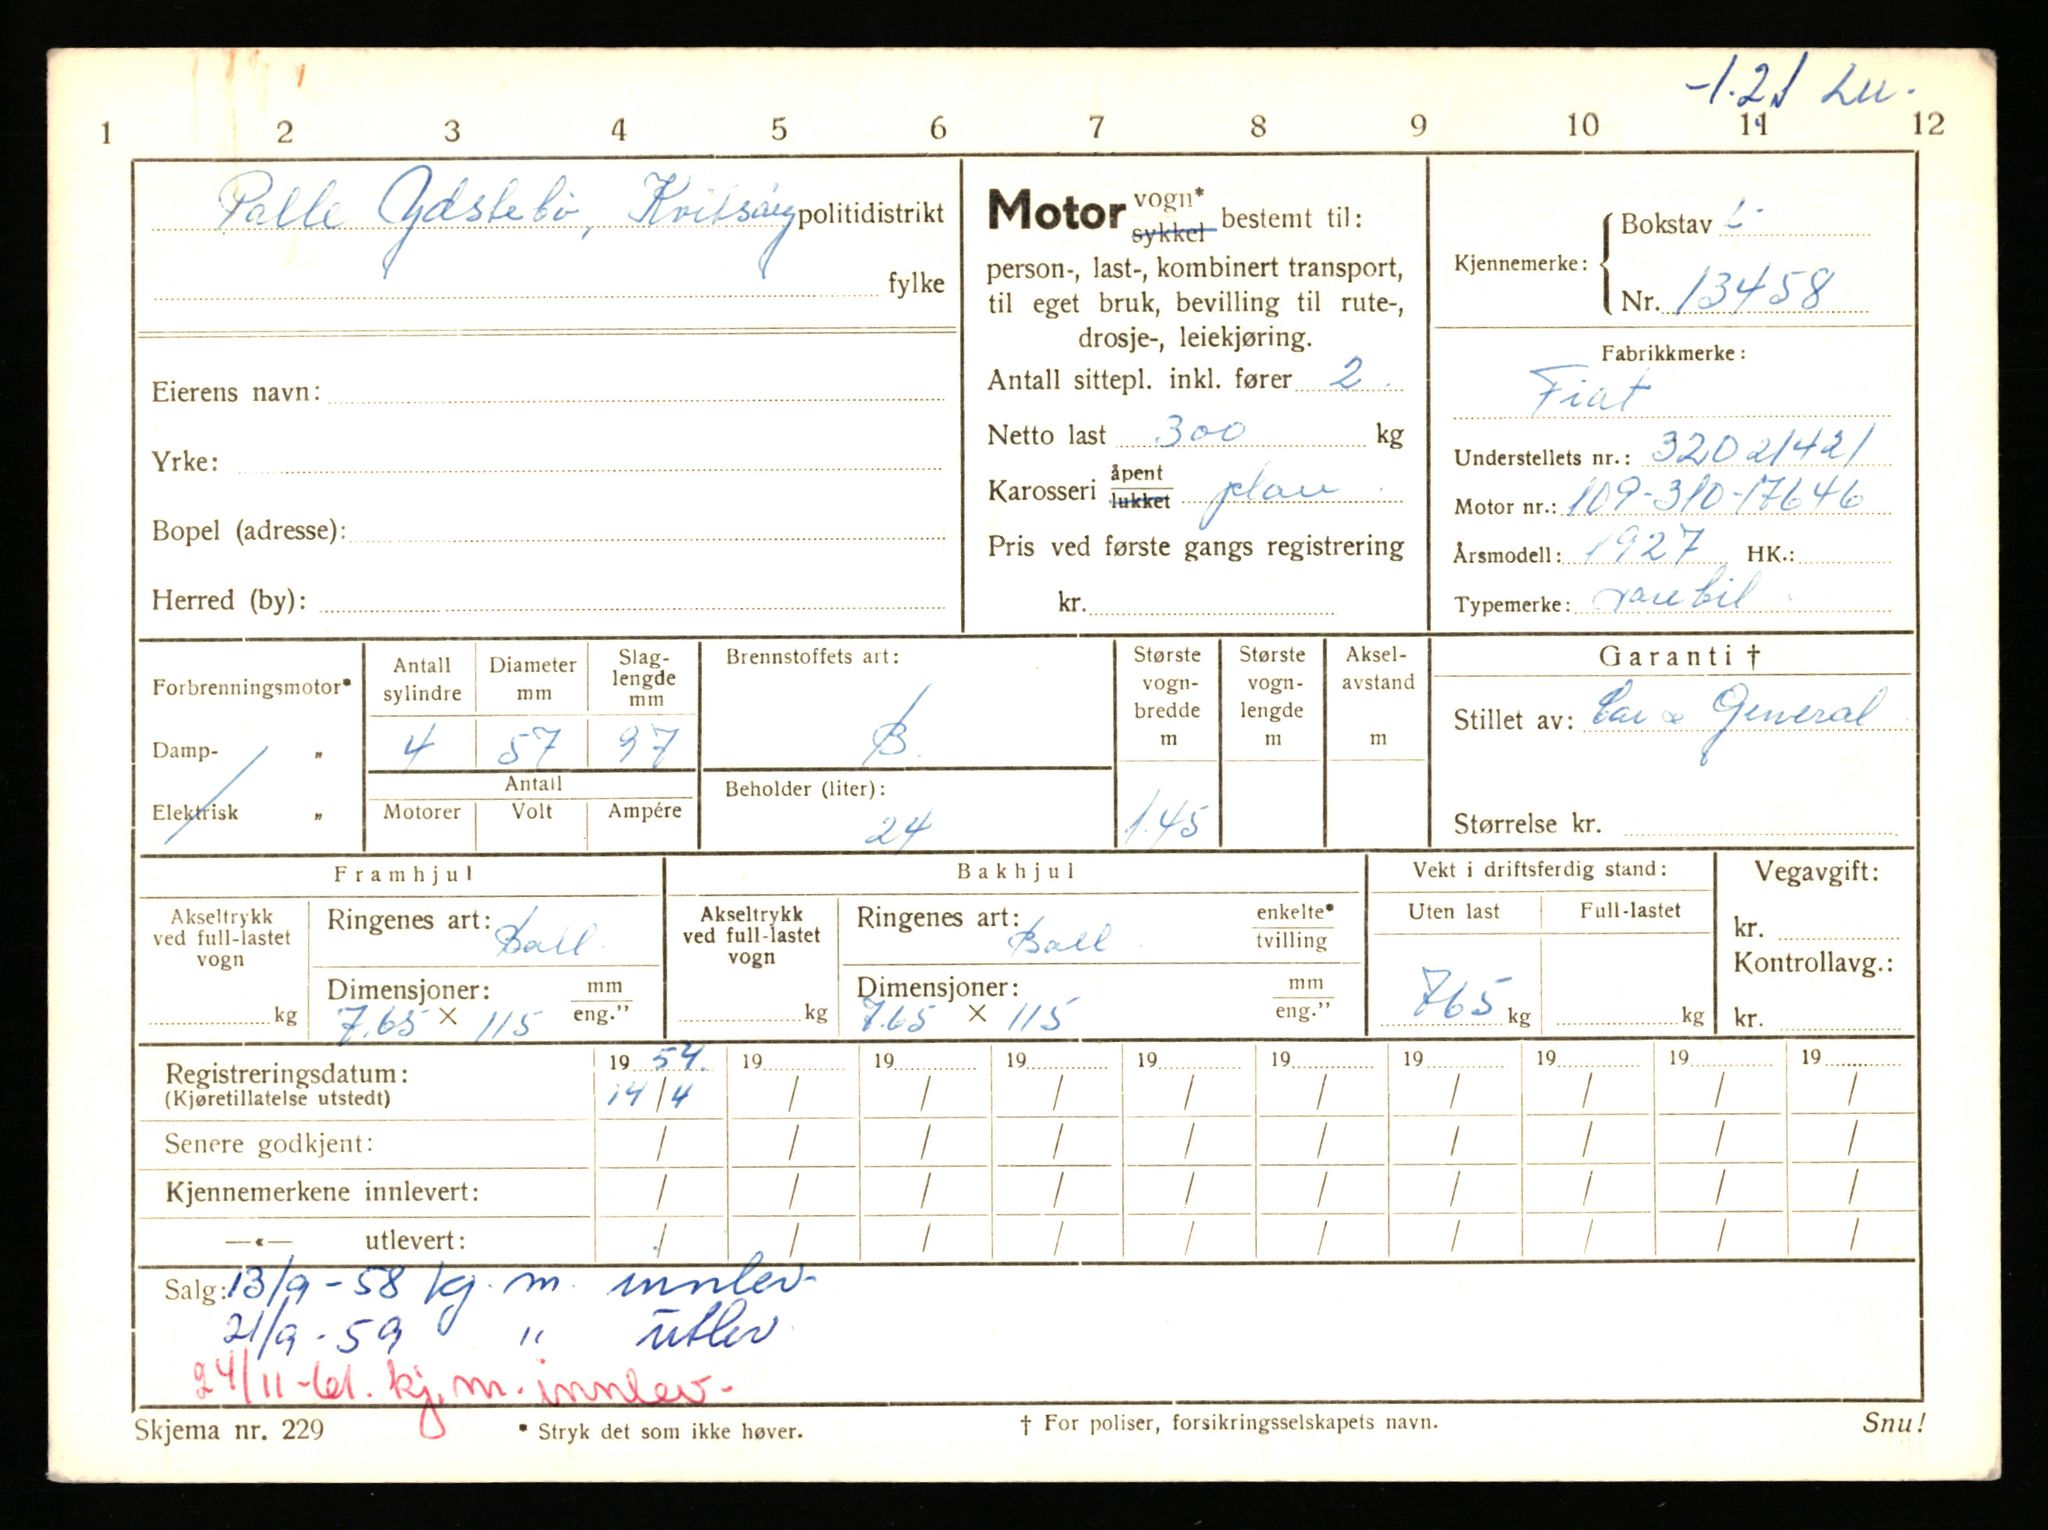 -1.21 Lu.
1 2 3 4 5 6 7 8 9 10 11 12
Palle Ydstebø, Kvitsøy politidistrikt
fylke
Eierens navn:
Yrke:
Bopel (adresse):
Herred (by):
Motor vogn* sykkel bestemt til:
person-, last-, kombinert transport,
til eget bruk, bevilling til rute-,
drosje-, leiekjøring.
Antall sittepl. inkl. fører 2
Netto last 300 kg
Karosseri åpent lukket plan
Pris ved første gangs registrering
kr.
Kjennemerke: Bokstav L
Nr. 13458
Fabrikkmerke:
Fiat
Understellets nr.: 32021421
Motor nr.: 109-310-17646
Årsmodell: 1927 HK.:
Typemerke: varebil
Forbrenningsmotor*
Damp- „
Elektrisk „
Antall sylindre 4
Diameter mm 57
Slaglengde mm 97
Antall
Motorer Volt Ampére
Brennstoffets art:
B.
Beholder (liter):
24
Største vognbredde m 1.45
Største vognlengde m
Akselavstand m
Garanti †
Stillet av: Car & General
Størrelse kr.
Framhjul
Akseltrykk ved full-lastet vogn kg
Ringenes art: Ball.
Dimensjoner: mm eng.”
7.65 × 115
Bakhjul
Akseltrykk ved full-lastet vogn kg
Ringenes art: Ball enkelte* tvilling
Dimensjoner: mm eng.”
7.65 × 115
Vekt i driftsferdig stand:
Uten last Full-lastet
765 kg kg
Vegavgift:
kr.
Kontrollavg.:
kr.
Registreringsdatum: 19 54. 19 19 19 19 19 19 19 19 19
(Kjøretillatelse utstedt) 14/4 / / / / / / / / /
Senere godkjent: / / / / / / / / / /
Kjennemerkene innlevert: / / / / / / / / / /
—«— utlevert: / / / / / / / / / /
Salg: 13/9-58 kj. m. innlev-
21/9-59 " utlev
24/11-61. kj. m. innlev-
Skjema nr. 229 * Stryk det som ikke høver. † For poliser, forsikringsselskapets navn. Snu!